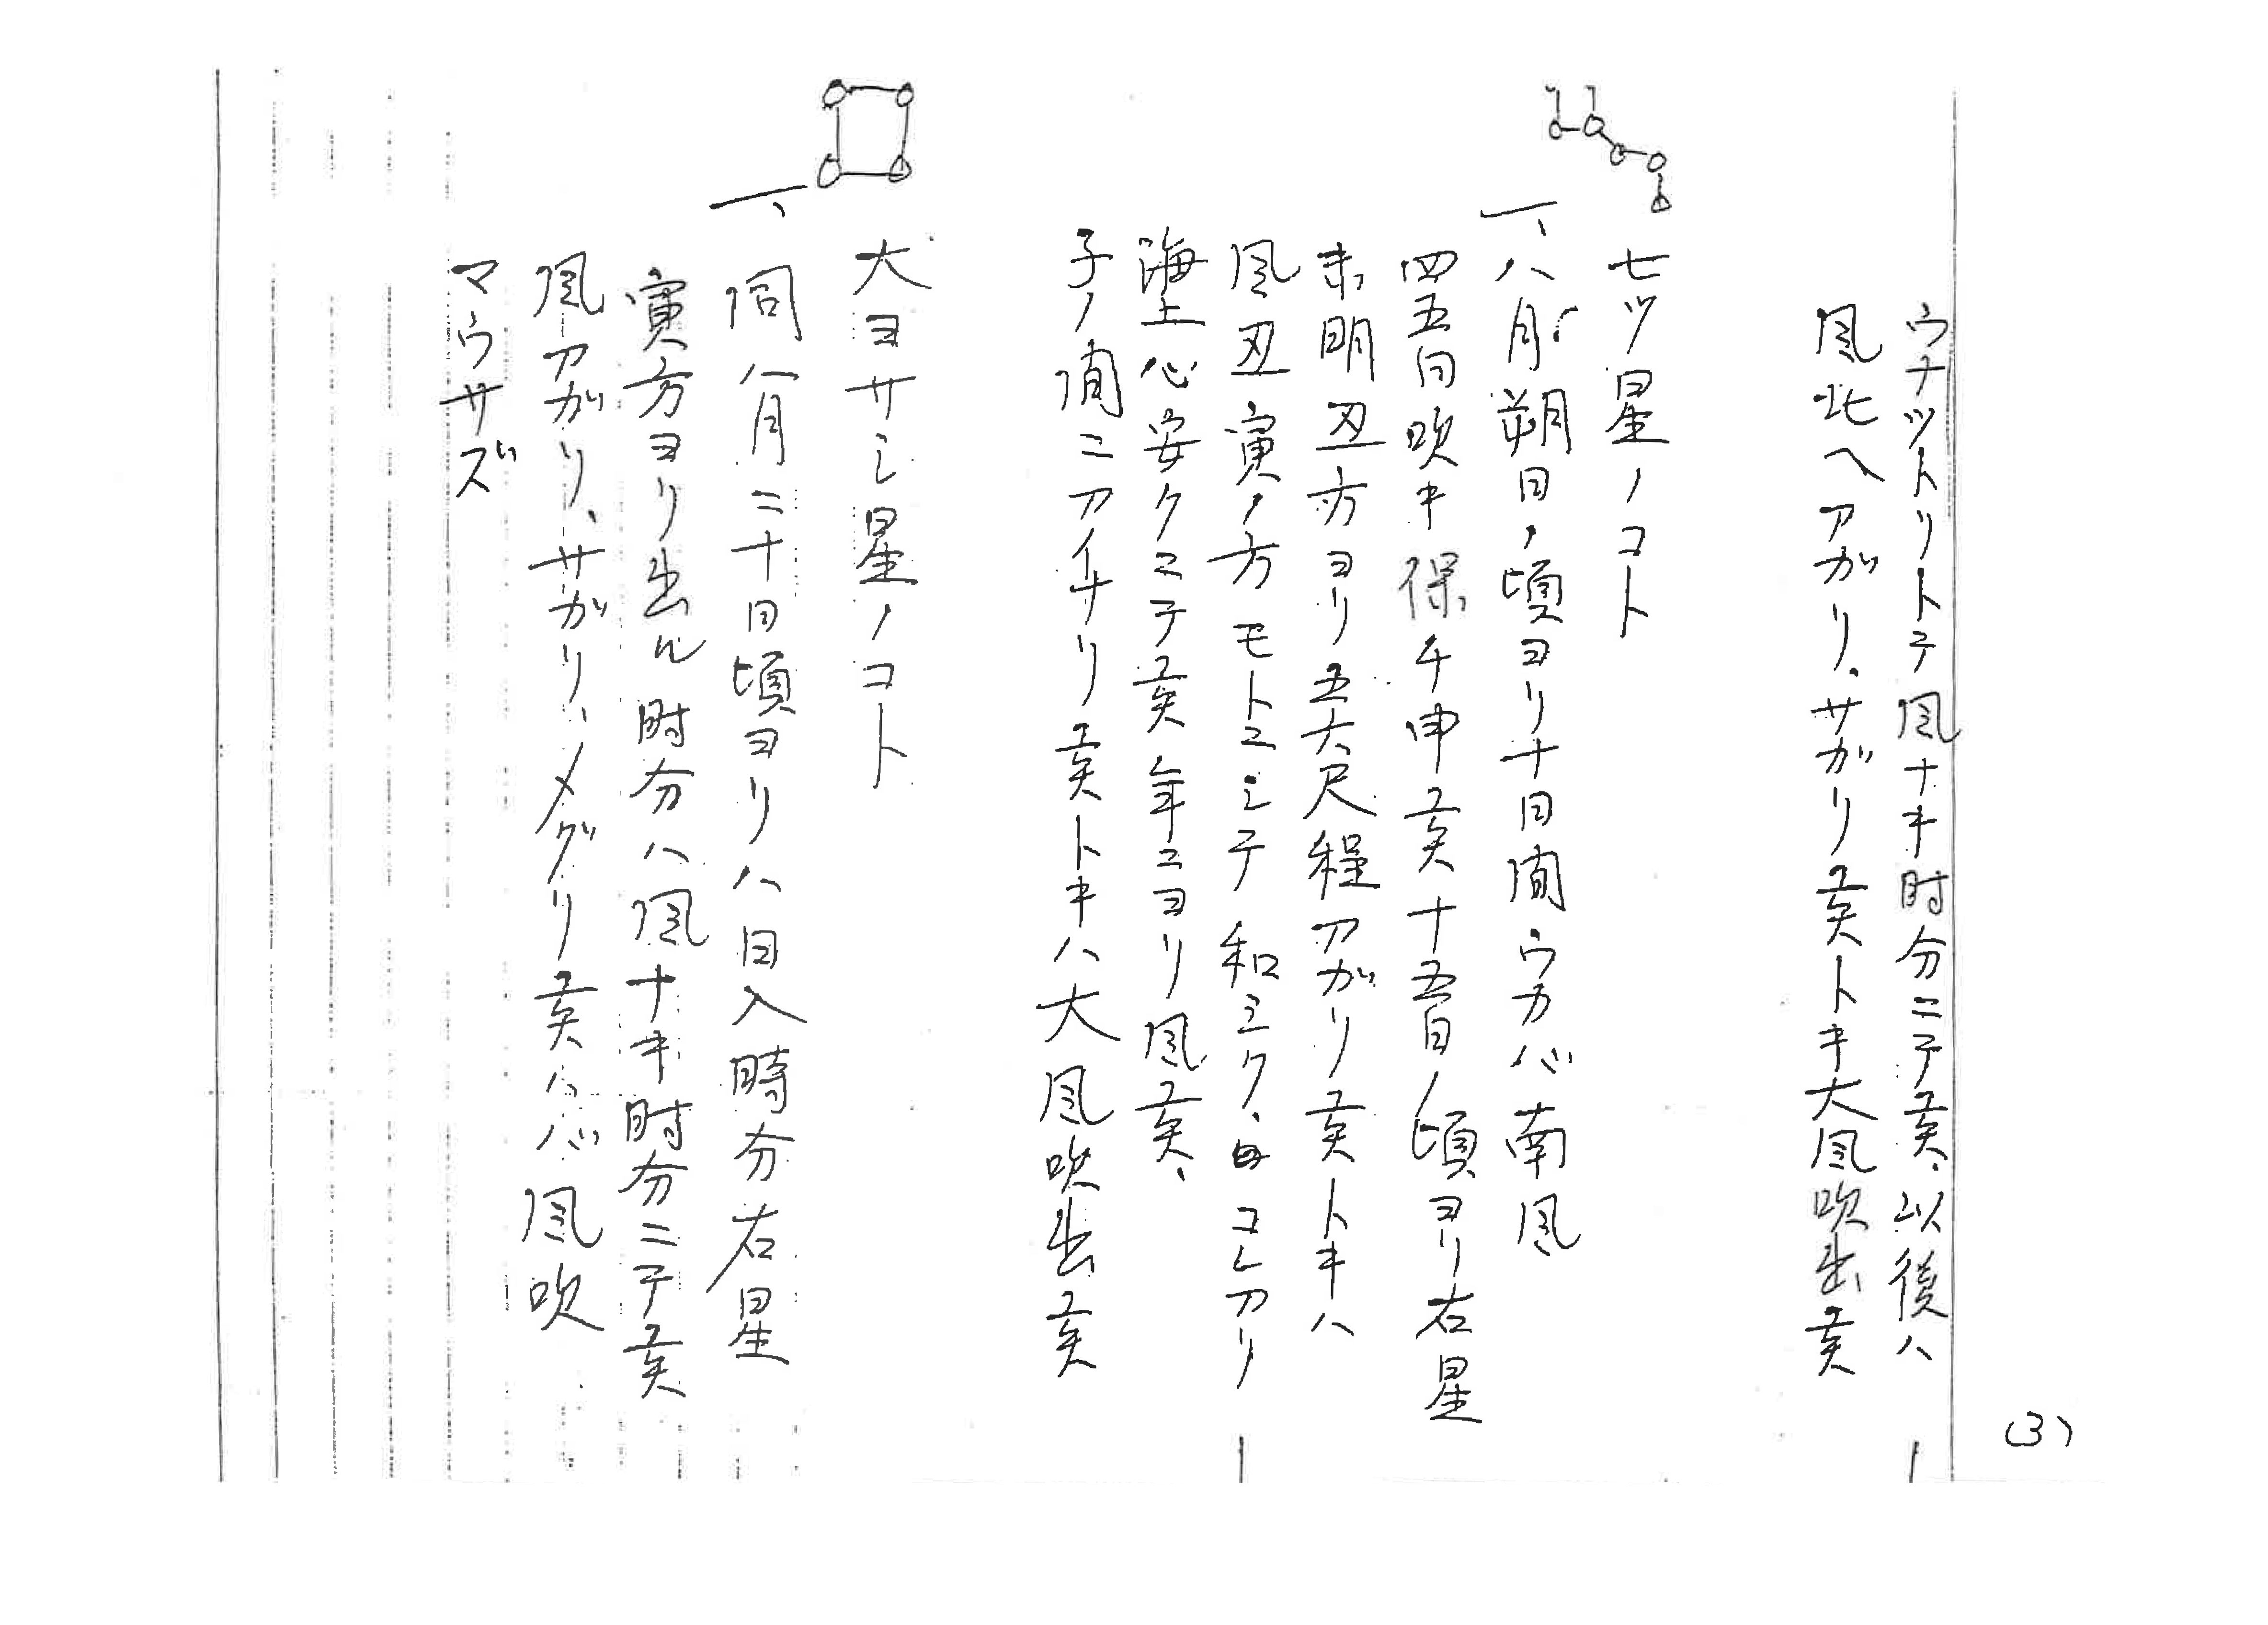 (3)
ウナットリトテ風ナキ時分ニテ美、以後ハ
風北ヘアガリ、サガリ美トキ大風吹出美
七ツ星ノコト
一、八月朔日ノ頃ヨリ十日間ウカバ南風
四五日吹キ保チ申美十五日ノ頃ヨリ右星
未明丑方ヨリ五六尺程アガリ美トキハ
風丑寅ノ方モトニシテ和ミク、毎コレアリ
海上心安クニテ美年ニヨリ風美、
子ノ間ニアイナリ美トキハ大風吹出美
大ヨサシ星ノコト
一、同八月二十日頃ヨリハ日入時分右星
寅方ヨリ出ル時分ハ風ナキ時分ニテ美
風アガリ、サガリ、メグリ美ハバ風吹
マウサズ